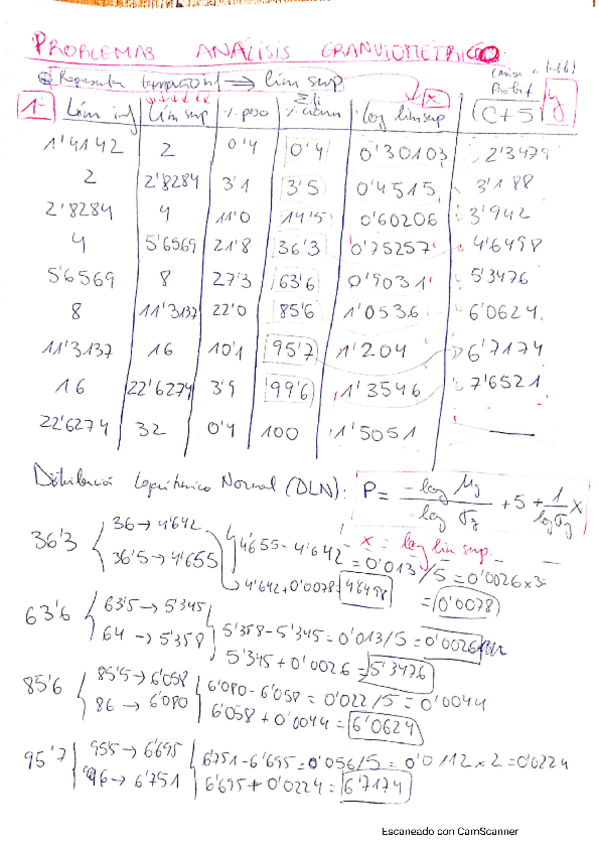 PROBLEMAS ANÁLISIS GRANULOMETRICO
Representar → lím sup
1- Lím inf | Lím sup | % peso | % acum | log lim sup | (C+5) y
Σfi x Probit
1'4142 2 0'4 0'4 0'30103 2'3479
2 2'8284 3'1 3'5 0'4515 3'188
2'8284 4 11'0 14'5 0'60206 3'942
4 5'6569 21'8 36'3 0'75257 4'6498
5'6569 8 27'3 63'6 0'9031 5'3476
8 11'3137 22'0 85'6 1'0536 6'0624
11'3137 16 10'1 95'7 1'204 6'7174
16 22'6274 3'9 99'6 1'3546 7'6521
22'6274 32 0'4 100 1'5051 —
Distribución Logarítmico Normal (DLN): P = -log μg / log σg + 5 + 1/log σg x
x = log lim sup.
36'3 { 36 → 4'642 36'5 → 4'655 } 4'655 - 4'642 = 0'013/5 = 0'0026 x 3 = 0'0078
4'642 + 0'0078 = 4'6498
63'6 { 63'5 → 5'345 64 → 5'358 } 5'358 - 5'345 = 0'013/5 = 0'0026
5'345 + 0'0026 = 5'3476
85'6 { 85'5 → 6'058 86 → 6'080 } 6'080 - 6'058 = 0'022/5 = 0'0044
6'058 + 0'0044 = 6'0624
95'7 { 95'5 → 6'695 96 → 6'751 } 6'751 - 6'695 = 0'056/5 = 0'0112 x 2 = 0'0224
6'695 + 0'0224 = 6'7174
Escaneado con CamScanner